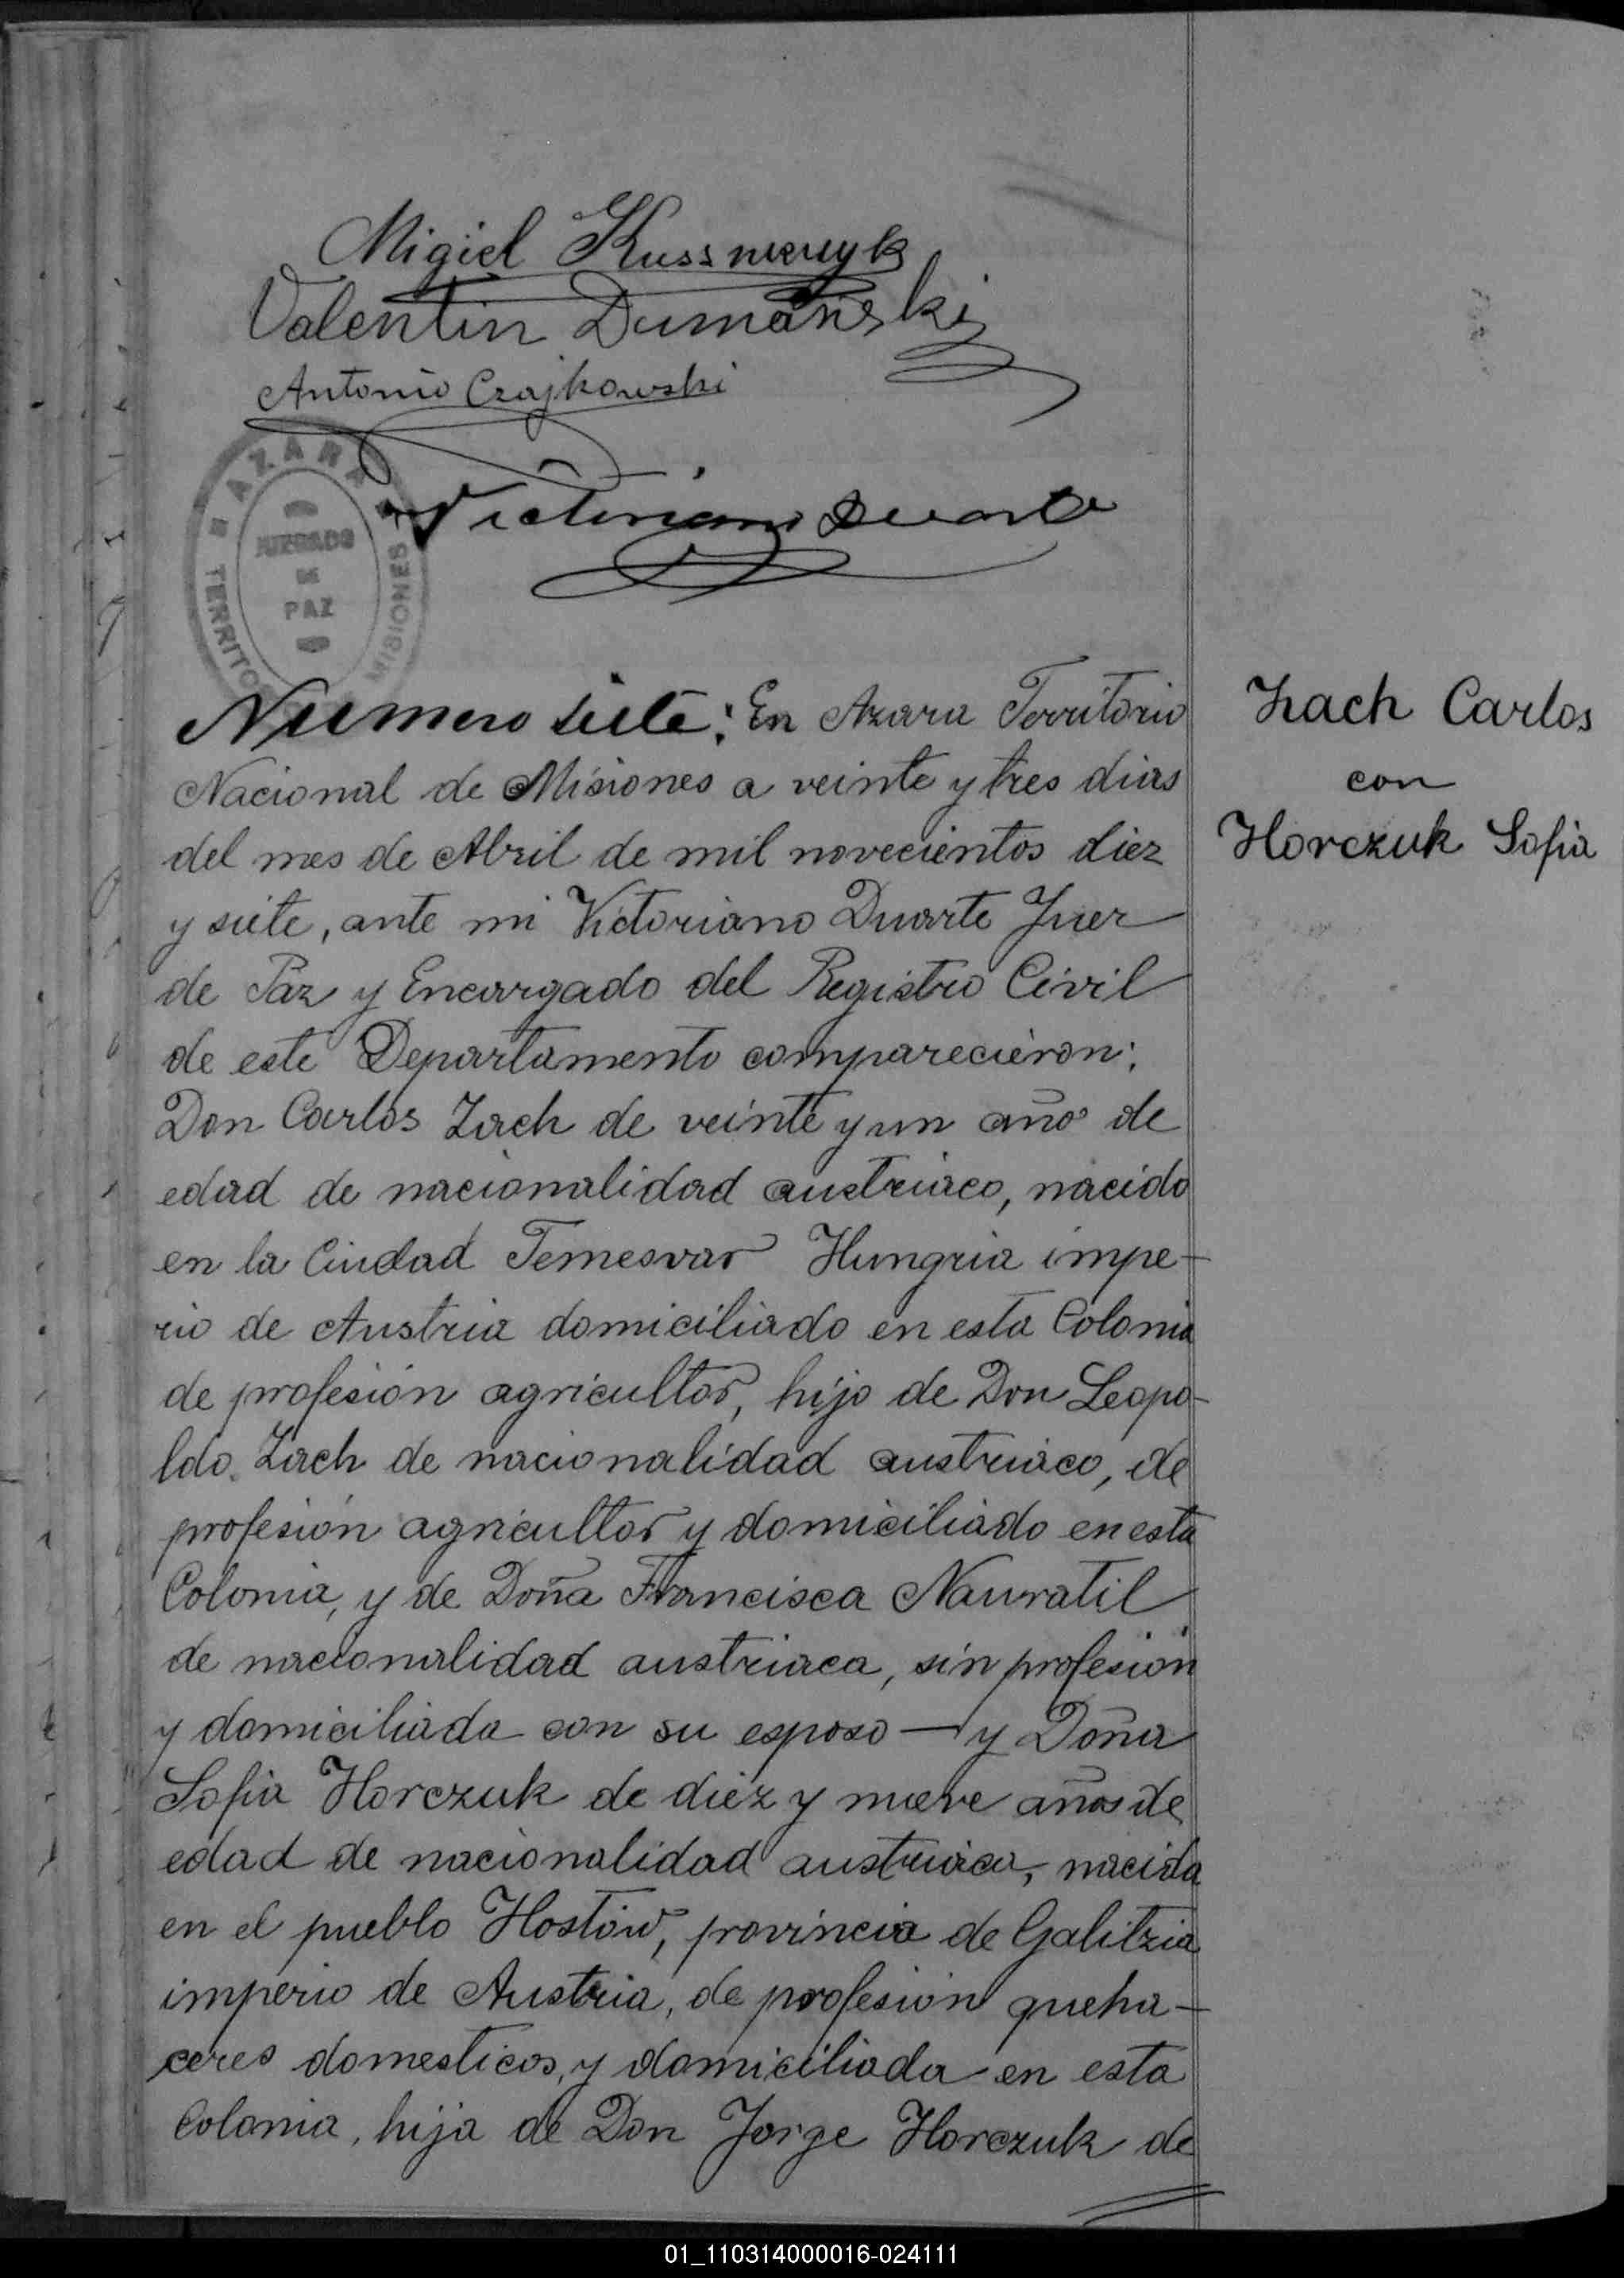 Migiel
Valentin Dumański
Antonio Czajkowski
AZARA
JUZGADO
DE
PAZ
TERRITO
MISIONES
Victoriano Duarte
Numero siete: En Azara Territorio
Nacional de Misiones a veinte y tres dias
del mes de Abril de mil novecientos diez
y siete, ante mi Victoriano Duarte Juez
de Paz y Encargado del Registro Civil
de este Departamento comparecieron:
Don Carlos Zach de veinte y un año de
edad de nacionalidad austriaco, nacido
en la Ciudad Temesvar Hungria impe-
rio de Austria domiciliado en esta Colonia
de profesión agricultor, hijo de Don Leopo-
ldo Zach de nacionalidad austriaco, de
profesión agricultor y domiciliado en esta
Colonia, y de Doña Francisca Nawratil
de nacionalidad austriaca, sin profesion
y domiciliada con su esposo — y Doña
Sofia Horczuk de diez y nueve años de
edad de nacionalidad austriaca, nacida
en el pueblo Hostów, provincia de Galitzia
imperio de Austria, de profesion queha-
ceres domesticos, y domiciliada en esta
Colonia, hija de Don Jorge Horczuk de
Zach Carlos
con
Horczuk Sofia
01_110314000016-024111